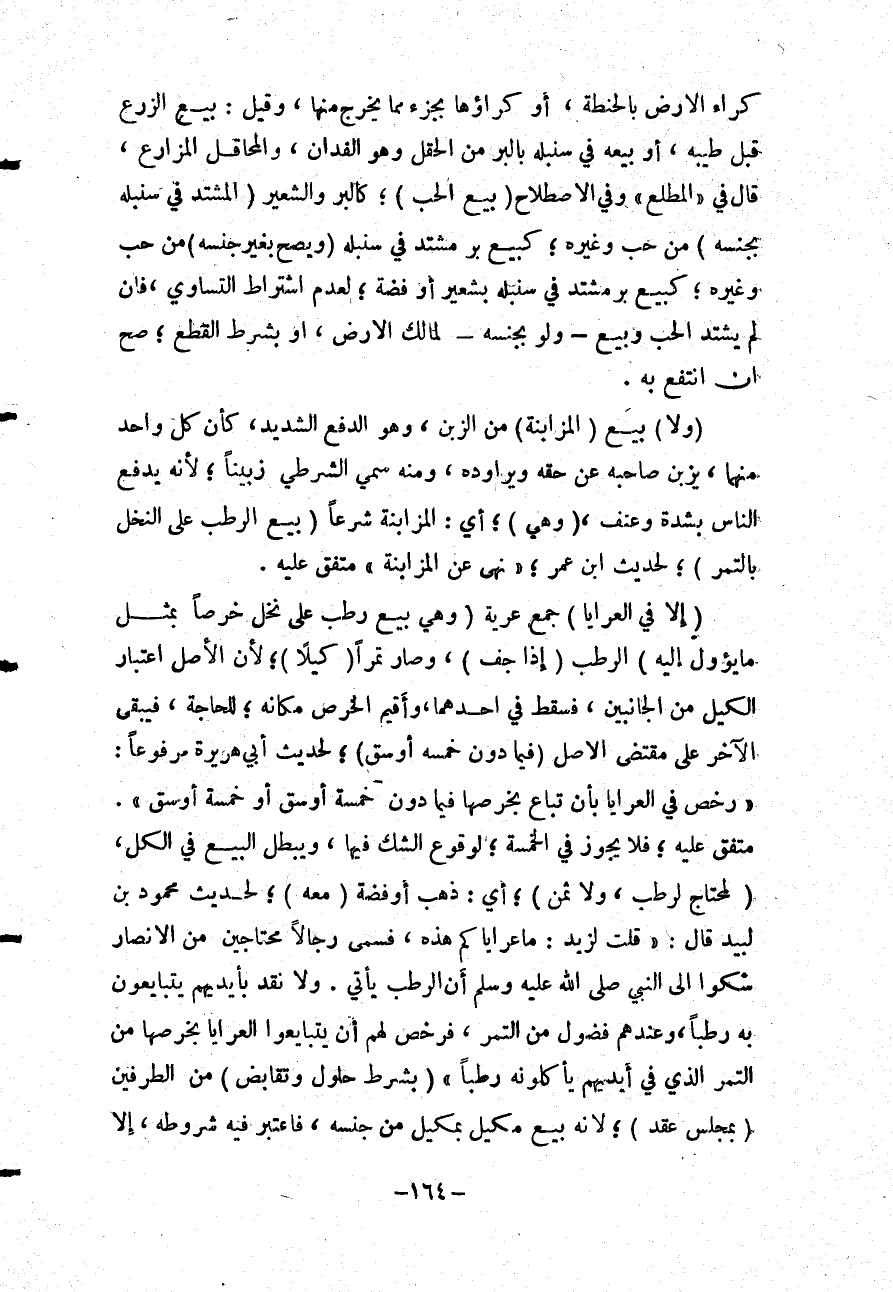 كراء الارض بالحنطة ، أو كراؤها بجزء مما يخرج منها ، وقيل : بيع الزرع
قبل طيبه ، أو بيعه في سنبله بالبر من الحقل وهو الفدان ، والمحاقل المزارع ،
قال في «المطلع» وفي الاصطلاح( بيع الحب ) ؛ كالبر والشعير ( المشتد في سنبله
بجنسه ) من حب وغيره ؛ كبيع بر مشتد في سنبله (ويصح بغير جنسه)من حب
وغيره ؛ كبيع بر مشتد في سنبله بشعير أو فضة ؛ لعدم اشتراط التساوي ،فان
لم يشتد الحب وبيع – ولو بجنسه – لمالك الارض ، او بشرط القطع ؛ صح
ان انتفع به .
(ولا) بيع ( المزابنة) من الزبن ، وهو الدفع الشديد، كأن كل واحد
منهما ، يزبن صاحبه عن حقه ويراوده ، ومنه سمي الشرطي زبيناً ؛ لأنه يدفع
الناس بشدة وعنف ،( وهي ) ؛ أي : المزابنة شرعاً ( بيع الرطب على النخل
بالتمر ) ؛ لحديث ابن عمر ؛ « نهى عن المزابنة » متفق عليه .
( إلا في العرايا ) جمع عرية ( وهي بيع رطب على نخل خرصاً بمثل
مايؤول اليه ) الرطب ( إذا جف ) ، وصار تمراً( كيلًا )؛ لأن الأصل اعتبار
الكيل من الجانبين ، فسقط في احدهما،وأقيم الخرص مكانه ؛ للحاجة ، فيبقى
الآخر على مقتضى الاصل (فيما دون خمسه أوسق) ؛ لحديث أبي هريرة مرفوعاً :
« رخص في العرايا بأن تباع بخرصها فيما دون خمسة أوسق أو خمسة أوسق » .
متفق عليه ؛ فلا يجوز في الخمسة ؛ لوقوع الشك فيها ، ويبطل البيع في الكل،
( لمحتاج لرطب ، ولا ثمن ) ؛ أي : ذهب أوفضة ( معه ) ؛ لحديث محمود بن
لبيد قال : « قلت لزيد : ماعراياكم هذه ، فسمى رجالاً محتاجين من الانصار
شكوا الى النبي صلى الله عليه وسلم أن الرطب يأتي . ولا نقد بأيديهم يتبايعون
به رطباً،وعندهم فضول من التمر ، فرخص لهم أن يتبايعوا العرايا بخرصها من
التمر الذي في أيديهم يأكلونه رطباً » ( بشرط حلول وتقابض ) من الطرفين
( بمجلس عقد ) ؛ لانه بيع مكيل بمكيل من جنسه ، فاعتبر فيه شروطه ، إلا
–١٦٤–